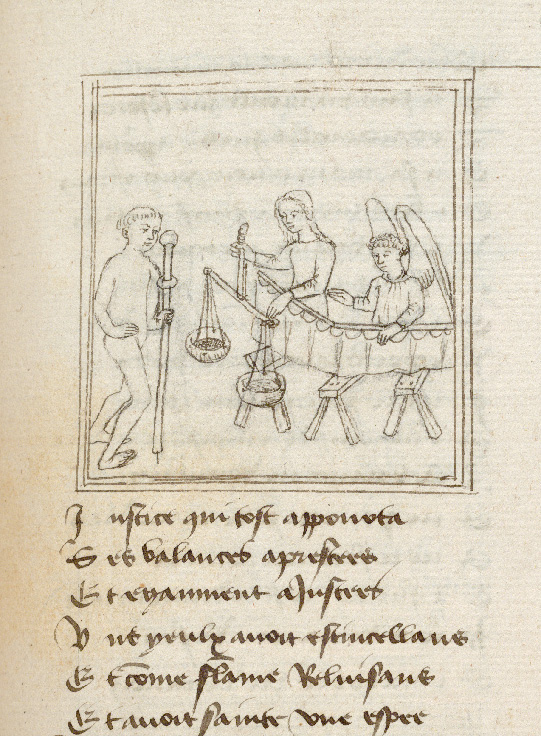 Justice qui tost appourta
Ses balances aprestees
Et egaument aJustees
Uns yeulx auoit estincellans
Et cõme flame Reluisans
Et auoit sainte vne espee